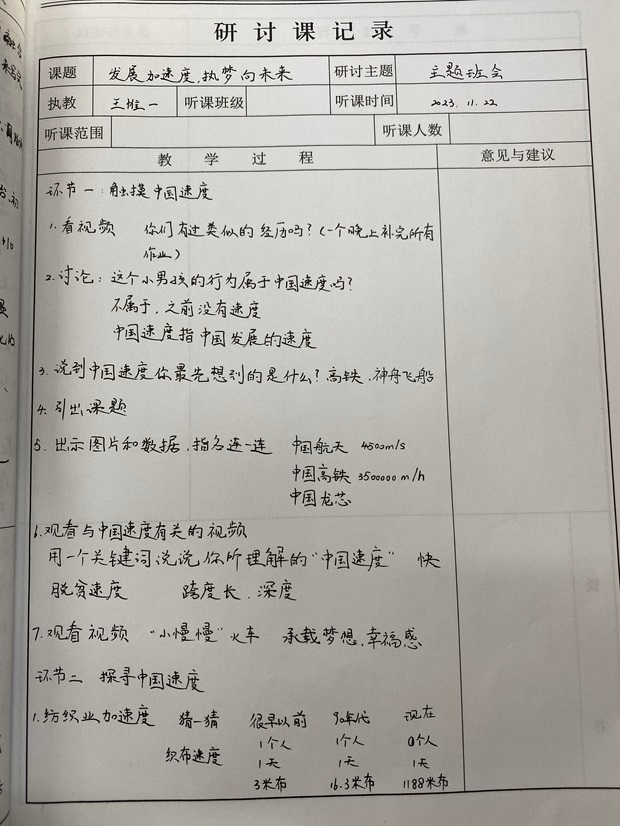 研讨课记录
课题 发展加速度,执梦向未来 研讨主题 主题班会
执教 听课班级 听课时间 2023.11.22
听课范围 听课人数
教学过程 意见与建议
环节一:触摸中国速度
1.看视频 你们有过类似的经历吗?(一个晚上补完所有
作业)
2.讨论:这个小男孩的行为属于中国速度吗?
不属于,之前没有速度
中国速度指中国发展的速度
3.说到中国速度你最先想到的是什么?高铁,神舟飞船
4.引出课题
5.出示图片和数据,指名连一连 中国航天 4500m/s
中国高铁 3500000m/h
中国龙芯
6.观看与中国速度有关的视频
用一个关键词说说,你所理解的"中国速度" 快
脱贫速度 跨度长,深度
7.观看视频 "小慢慢"火车 承载梦想,幸福感
环节二 探寻中国速度
1.纺织业加速度 猜一猜 很早以前 90年代 现在
1个人 1个人 0个人
织布速度 1天 1天 1天
3米布 16.3米布 1188米布